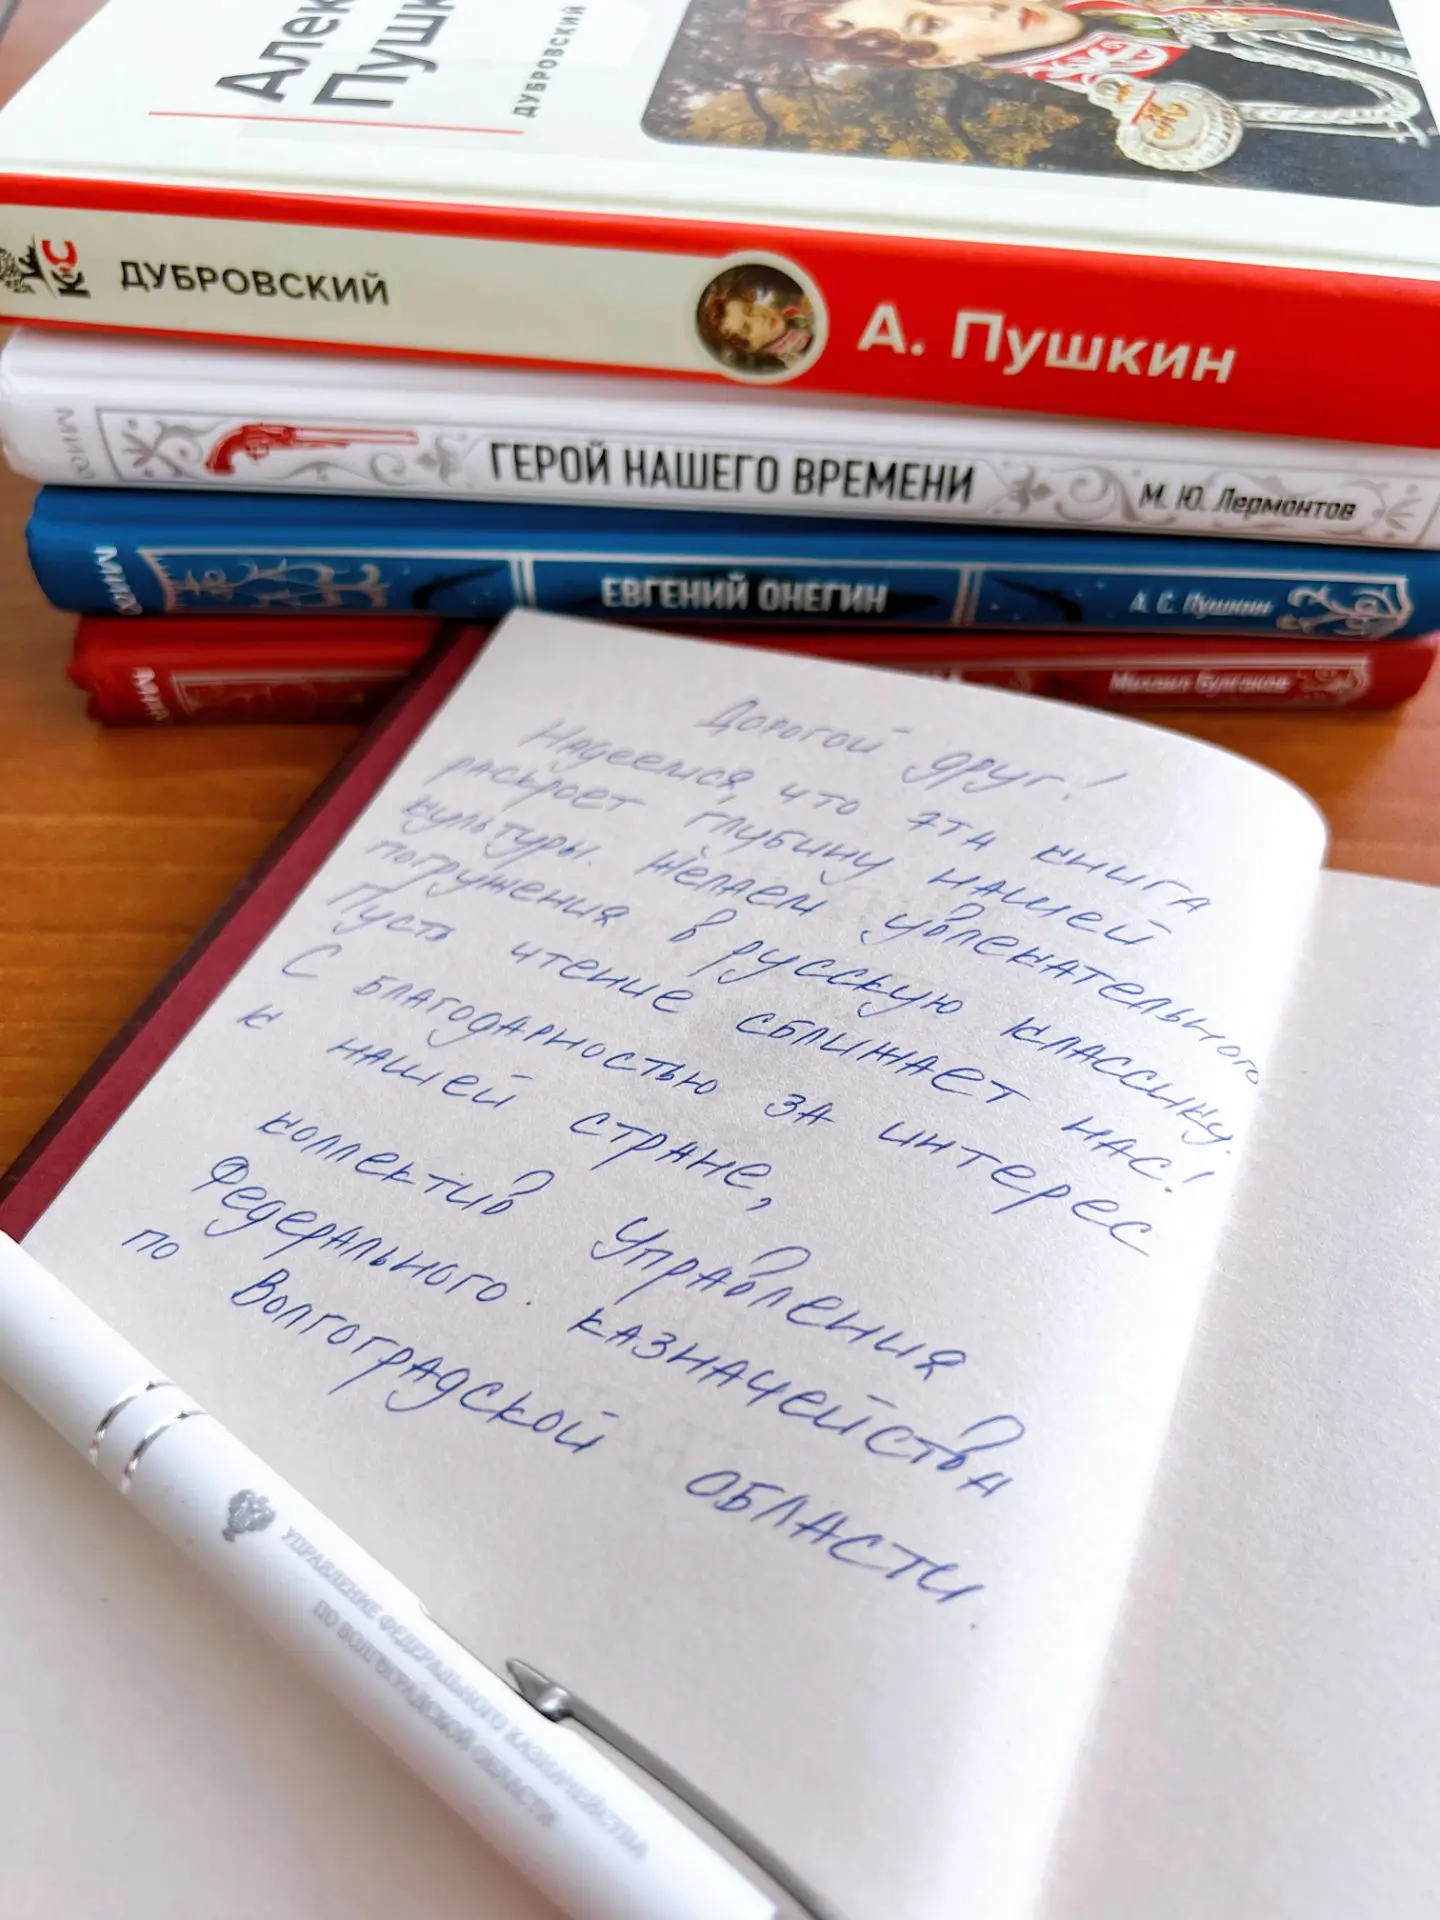 Алек
Пушк
ДУБРОВСКИЙ
КС
ДУБРОВСКИЙ
А. Пушкин
ГЕРОЙ НАШЕГО ВРЕМЕНИ
М. Ю. Лермонтов
ЕВГЕНИЙ ОНЕГИН
А. С. Пушкин
Михаил Булгаков
Дорогой друг!
Надеемся, что эта книга
раскроет глубину нашей
культуры. Желаем увлекательного
погружения в русскую классику.
Пусть чтение сближает нас!
С благодарностью за интерес
к нашей стране,
коллектив Управления
Федерального казначейства
по Волгоградской области.
УПРАВЛЕНИЕ ФЕДЕРАЛЬНОГО КАЗНАЧЕЙСТВА
ПО ВОЛГОГРАДСКОЙ ОБЛАСТИ